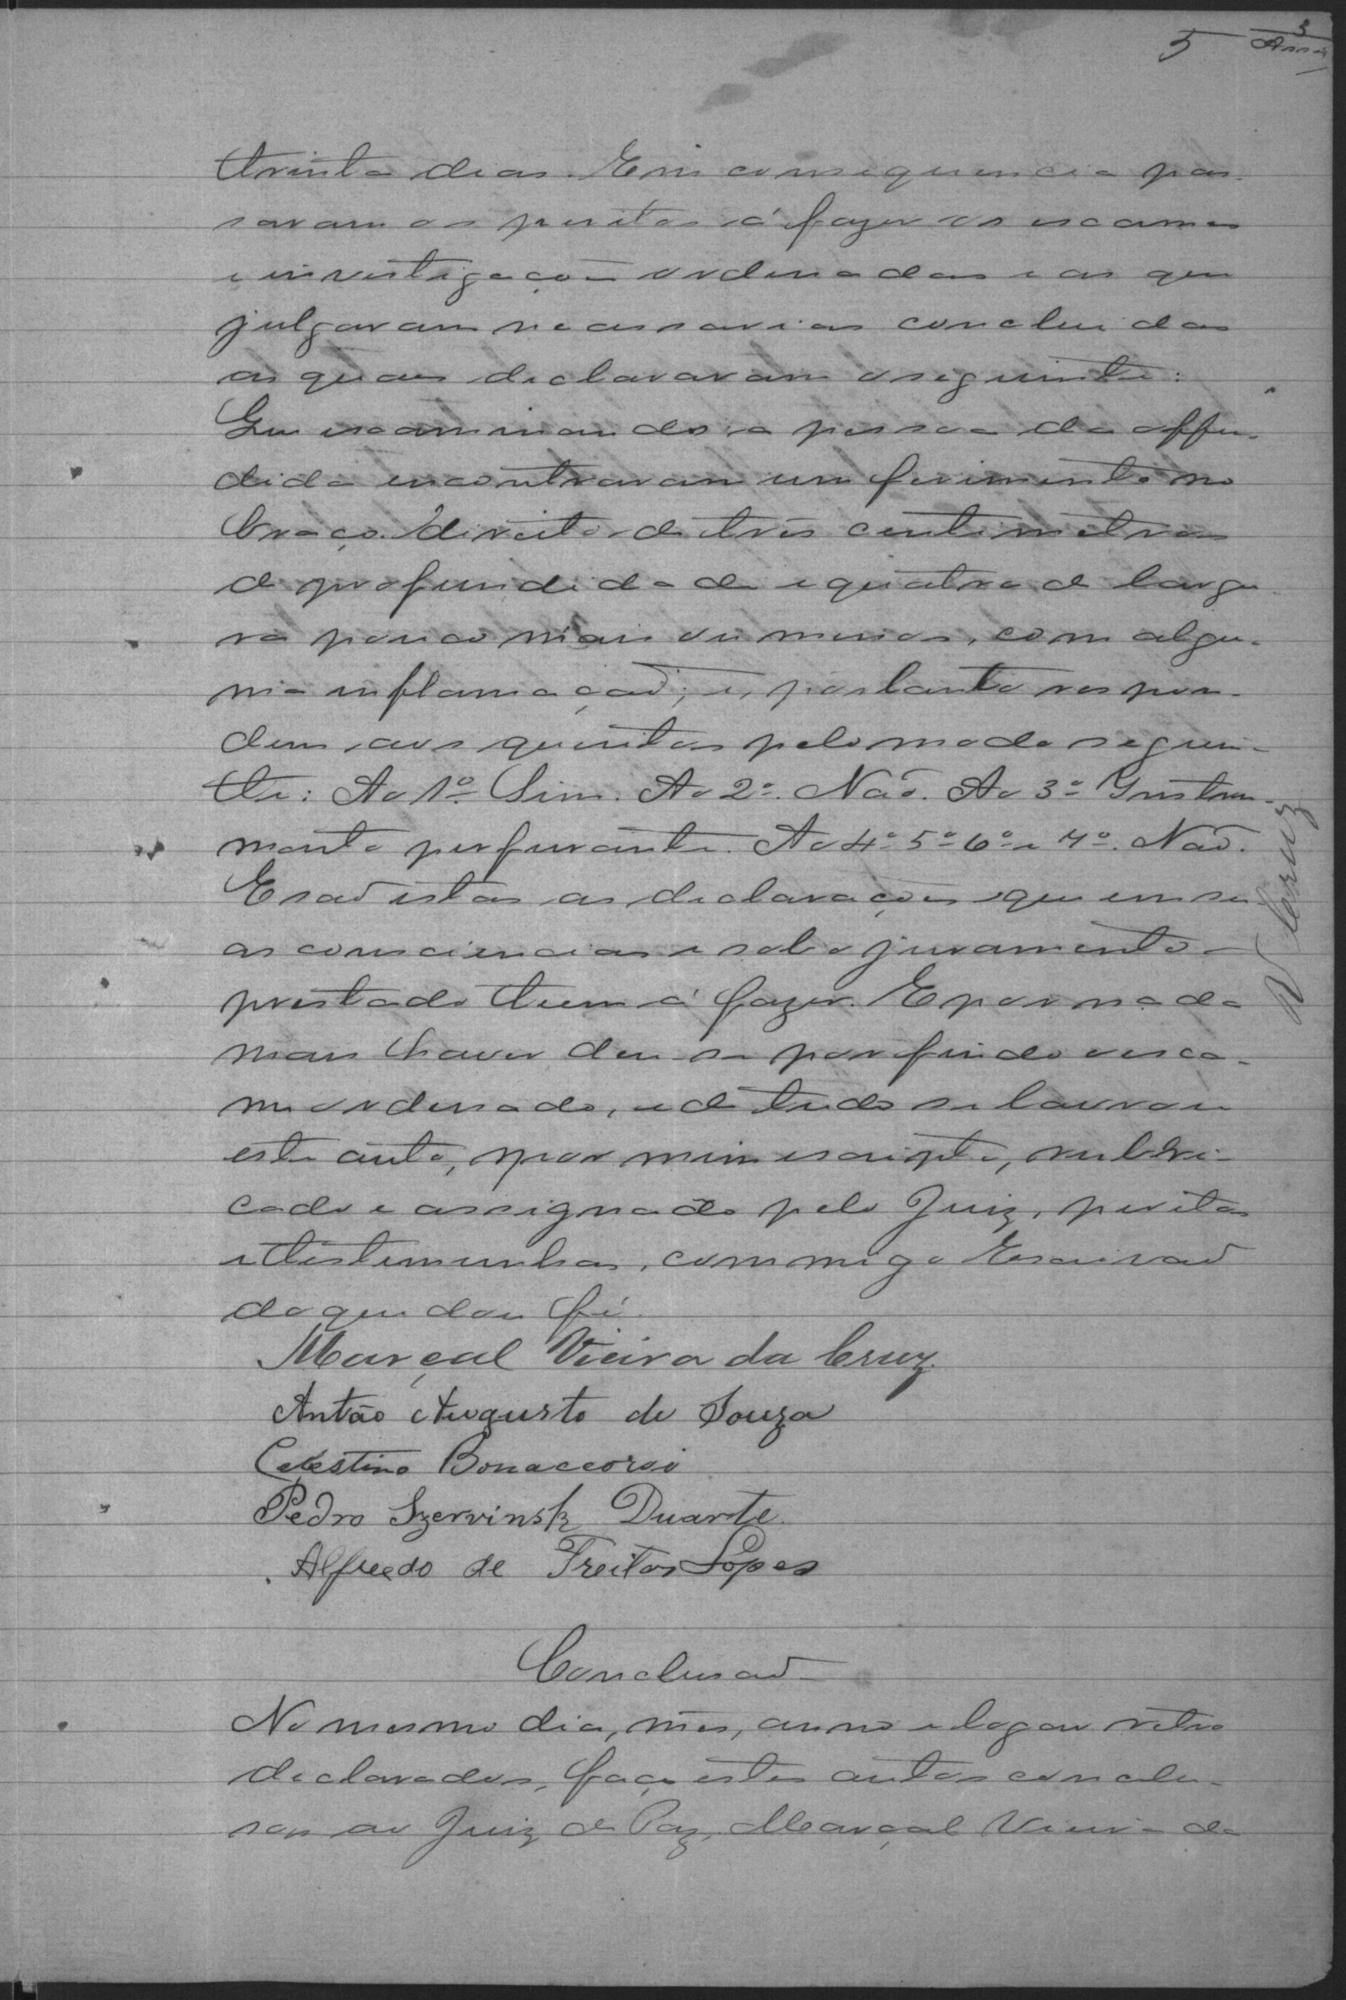 5 3
trinta dias. Em consequencia pas-
saram os peritos á fazer os exames
e investigações ordenadas e as que
julgaram necessarias concluidas
as quaes declararam o seguinte:
Que examinando a pessoa da offen-
dida encontraram um ferimento no
braço direito de tres centimetros
de profundidade e quatro de largu-
ra pouco mais ou menos, com algu-
ma inflamação; e, portanto respon-
dem aos quesitos pelo modo seguin-
te: Ao 1º Sim. Ao 2º. Não. Ao 3º Instru-
mento perfurante. Ao 4º 5º 6º e 7º. Não.
E são estas as declarações que em su
as consciencias e sob o juramento
prestado tem á fazer. E por nada
mais haver deu-se por findo o exa-
me ordenado, e de tudo se lavrou
este auto, por mim escripto, rubri-
cado e assignado pelo Juiz, peritos
e testemunhas, commigo Escrivão
do que dou fé.
Marçal Vieira da Cruz
Antão Augusto de Souza
Celestino Bonaccorsi
Pedro Szervinsk Duarte
Alfredo de Freitas Lopes
V Cruz
Conclusão
No mesmo dia, mes, anno e logar retro
declarados, faço estes autos conclu-
sos ao Juiz de Paz, Marçal Vieira da